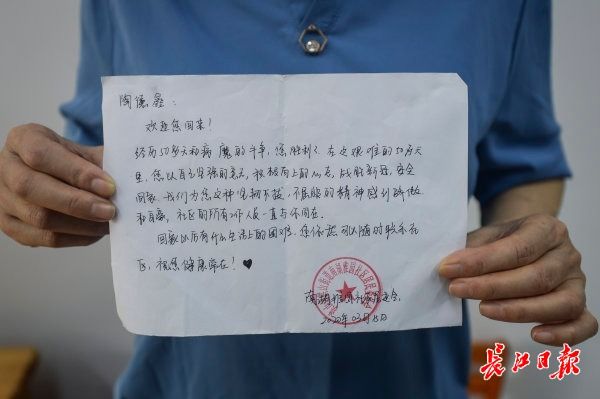 陶德鑫：
欢迎您回来！
经历50多天和病魔的斗争，您胜利了，在这艰难的50多天
里，您以自己坚强的意志，积极向上的心态，战胜新冠，安全
回家。我们为您这种坚韧不拔，不屈服的精神感到骄傲
和自豪，社区的所有工作人员一直与你同在。
回家以后有什么生活上的困难，您依然可以随时联系我
们，祝您健康常在！♥
社区居民委员会
2020年03月15日
长江日报